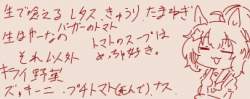 生で食える レタス、きゅうり、たまねぎ
生はやーなの バーガーのトマト
トマトのスープは
めっちゃ好き。
それ以外
キライ野菜
ズッキーニ、プチトマト(もんで)、ナス、